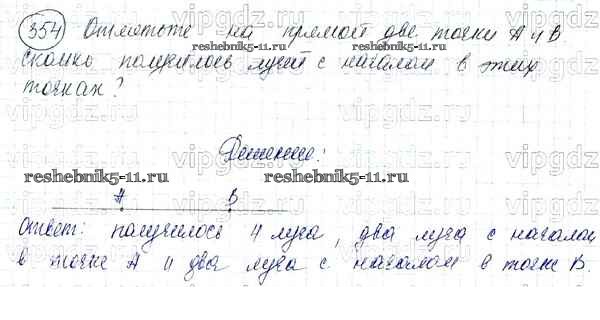 354 Отметьте на прямой две точки А и В
сколько получилось лучей с началом в этих
точках?
Решение:
А В
Ответ: получилось 4 луча, два луча с началом
в точке А и два луча с началом в точке В.
vipgdz.ru
reshebnik5-11.ru
reshebnik5-11.ru
reshebnik5-11.ru
reshebnik5-11.ru